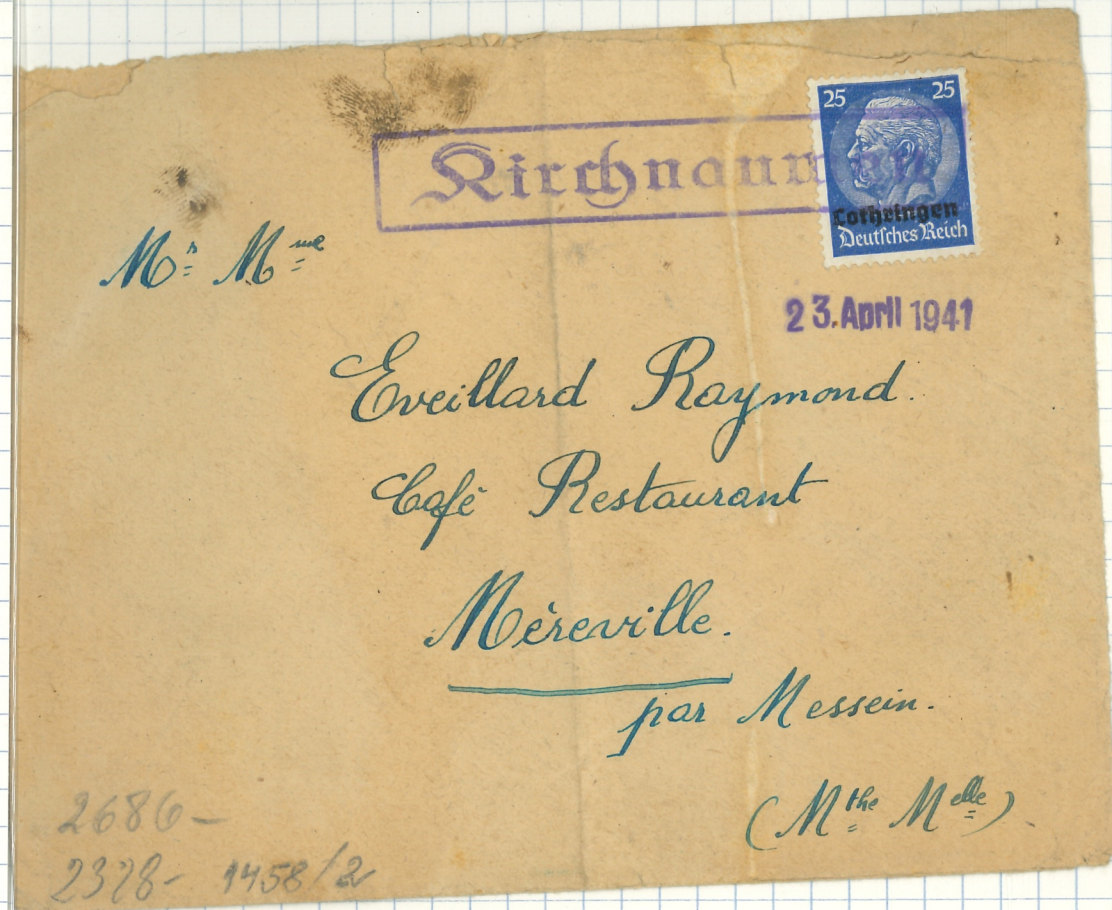 25 25
Kirchnaumen
Lothringen
Deutsches Reich
23. April 1941
Mr Mme
Eveillard Raymond.
Café Restaurant
Méreville.
par Messein.
(Mthe Melle).
2686-
2328- 1458/2